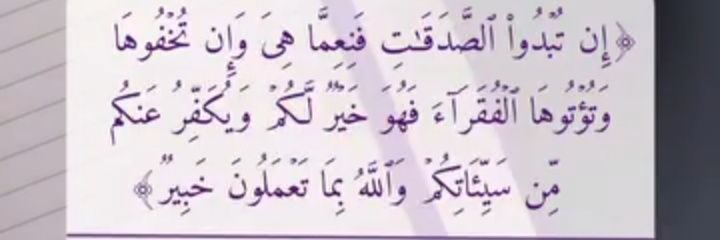 ﴿إِن تُبْدُوا۟ ٱلصَّدَقَـٰتِ فَنِعِمَّا هِىَ وَإِن تُخْفُوهَا
وَتُؤْتُوهَا ٱلْفُقَرَآءَ فَهُوَ خَيْرٌ لَّكُمْ وَيُكَفِّرُ عَنكُم
مِّن سَيِّئَاتِكُمْ وَٱللَّهُ بِمَا تَعْمَلُونَ خَبِيرٌ﴾